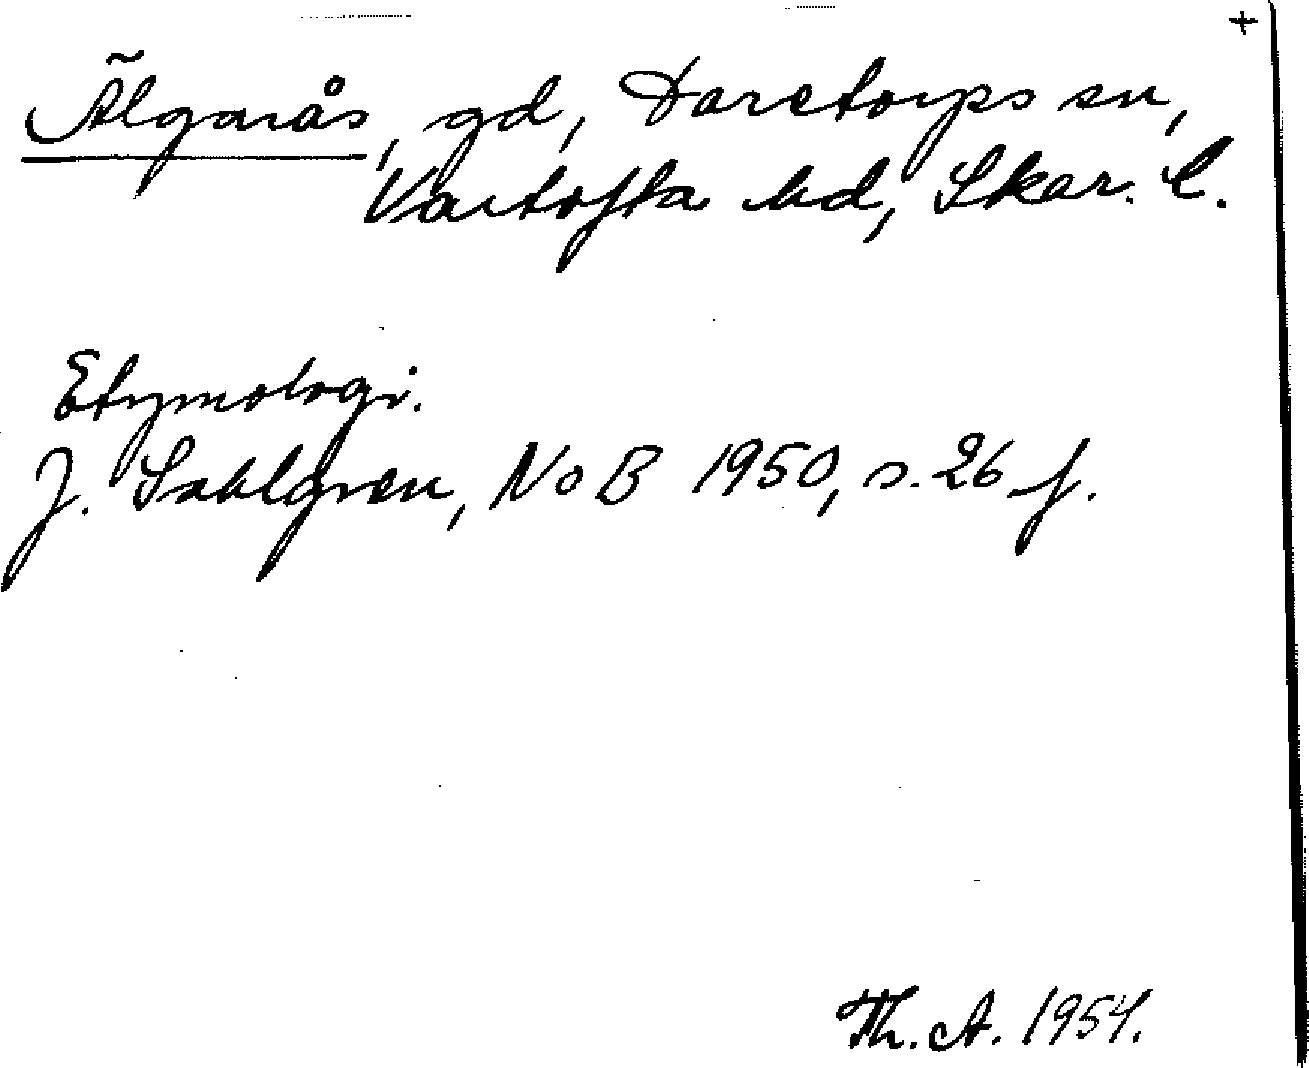 +
Älgarås, gd, Daretorps sn,
Vartofta hd, Skar. l.
Etymologi.
J. Sahlgren, NoB 1950, s. 26 f.
Th. A. 1954.